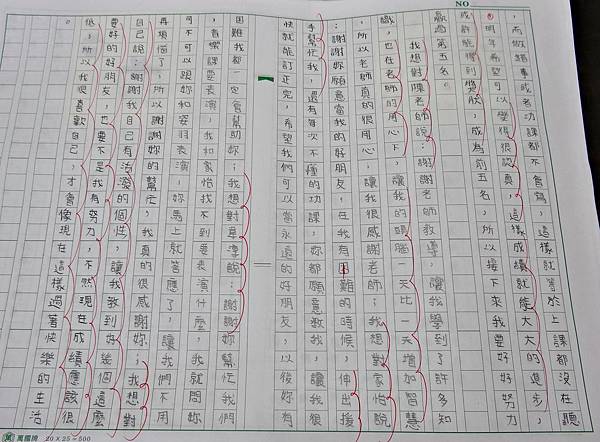 NO
，而做錯事或者功課都不會寫，這樣就等於上課都沒在聽
。明年希望可以變很認真，這樣成績就能大大的進步，
或許能得到獎狀，成為前五名，所以接下來我要好好努力
贏過第五名。
我想對陳老師說：謝謝老師教導，讓我學到了許多知
識，也在老師的用心下，讓我的頭腦一天比一天增加智慧
，所以老師真的很用心，讓我很感謝老師；我想對家怡說
：謝謝妳願意當我的好朋友，在我有困難的時候，伸出援
手幫忙我，還有每次不懂的功課，妳都願意教我，讓我很
快就能訂正完，希望我們可以當永遠的好朋友，以後妳有
困難我都一定會幫助妳；我想對韋淳說：謝謝妳幫忙我們
，音樂課要表演，我和家怡找不到要表演什麼，我就問妳
可不可以跟妳和姿羽表演，妳馬上就答應了，讓我們不用
再煩惱了，所以謝謝妳的幫忙，我真的很感謝妳；我想對
自己說：謝謝我自己有活潑的個性，讓我教到好幾個這麼
要好的好朋友，也要不是我有努力，不然現在成績應該很
低，所以我很喜歡自己，才會像現在這樣過著快樂的生活
萬國牌 20×25=500